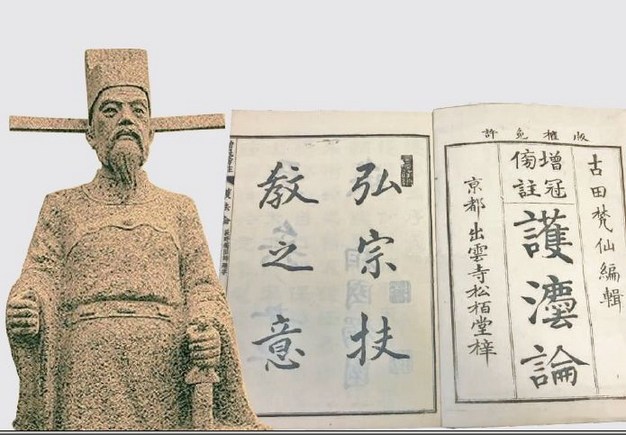 版權免許
古田梵仙編輯
增冠
傍註
護灋論
京都出雲寺松栢堂梓
弘宗扶
教之意